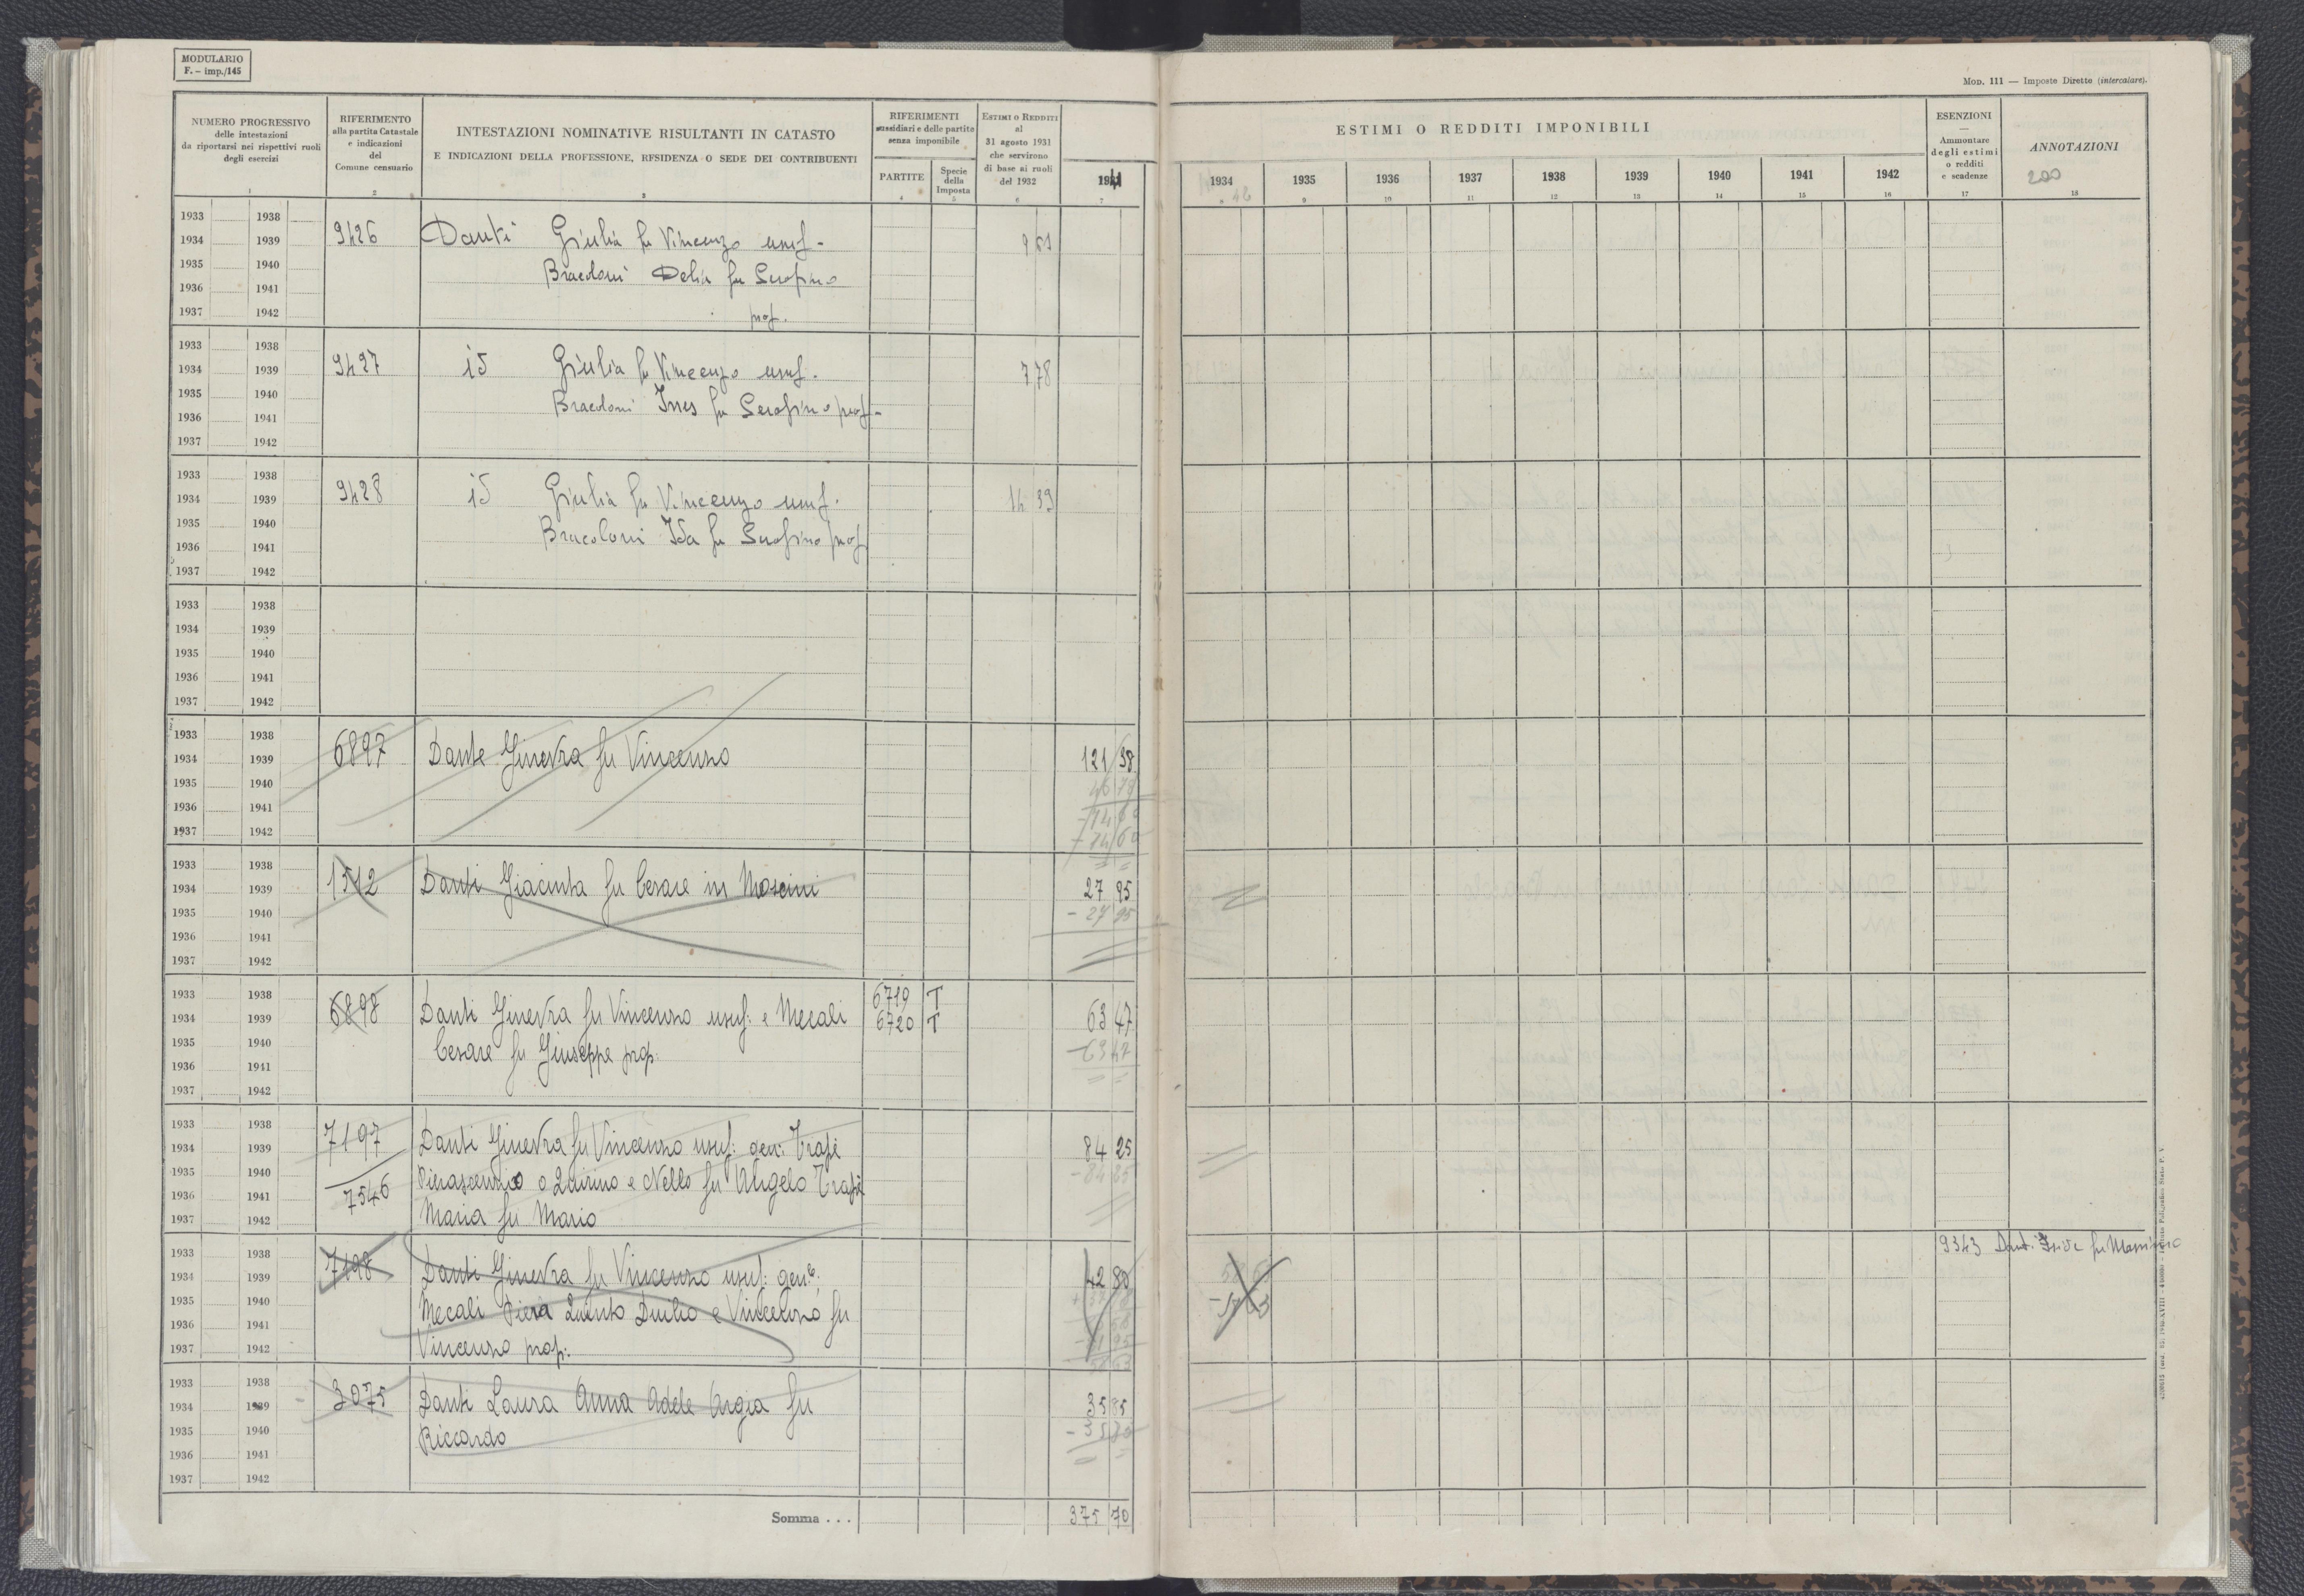 MODULARIO
F. – imp./145
Mod. 111 — Imposte Dirette (intercalare).
NUMERO PROGRESSIVO
delle intestazioni
da riportarsi nei rispettivi ruoli
degli esercizi
1
RIFERIMENTO
alla partita Catastale
e indicazioni
del
Comune censuario
2
INTESTAZIONI NOMINATIVE RISULTANTI IN CATASTO
E INDICAZIONI DELLA PROFESSIONE, RESIDENZA O SEDE DEI CONTRIBUENTI
3
RIFERIMENTI
sussidiari e delle partite
senza imponibile
PARTITE
4
Specie
della
Imposta
5
Estimi o Redditi
al
31 agosto 1931
che servirono
di base ai ruoli
del 1932
6
1941
7
ESTIMI O REDDITI IMPONIBILI
1934
1935
9
1936
10
1937
11
1938
12
1939
13
1940
14
1941
15
1942
16
ESENZIONI
—
Ammontare
degli estimi
o redditi
e scadenze
17
ANNOTAZIONI
200
18
1933 1938
1934 1939
1935 1940
1936 1941
1937 1942
9426 Danti Giulia fu Vincenzo usuf. 9 61
Bracoloni Delia fu Serafino
prop.
1933 1938
1934 1939
1935 1940
1936 1941
1937 1942
9427 id Giulia fu Vincenzo usuf. 7 78
Bracoloni Ines fu Serafino prop.
1933 1938
1934 1939
1935 1940
1936 1941
1937 1942
9428 id Giulia fu Vincenzo usuf. 14 39
Bracoloni Ida fu Serafino prop
1933 1938
1934 1939
1935 1940
1936 1941
1937 1942
1933 1938
1934 1939
1935 1940
1936 1941
1937 1942
6897 Dante Ginevra fu Vincenzo 121 38
46 78
- 74 60
- 74 60
1933 1938
1934 1939
1935 1940
1936 1941
1937 1942
1512 Danti Giacinta fu Cesare in Moscini 27 95
- 27 95
1933 1938
1934 1939
1935 1940
1936 1941
1937 1942
6719 T
6898 Danti Ginevra fu Vincenzo usuf: e Mecali 6720 T 63 47
Cesare fu Giuseppe prop: - 63 47
1933 1938
1934 1939
1935 1940
1936 1941
1937 1942
7197 Danti Ginevra fu Vincenzo usuf: gen: Trapè 84 25
7546 o Quirino e Nello fu Angelo Trapè
Maria fu Mario
1933 1938
1934 1939
1935 1940
1936 1941
1937 1942
9343 Danti fu Massimo
7198 Danti Ginevra fu Vincenzo usuf: gen: 42 80
Mecali Piera Quinto Duilio e Vincenzo fu
Vincenzo prop:
1933 1938
1934 1939
1935 1940
1936 1941
1937 1942
3075 Danti Laura Anna Adele Argia fu 35 85
Riccardo
Somma . . . 375 70